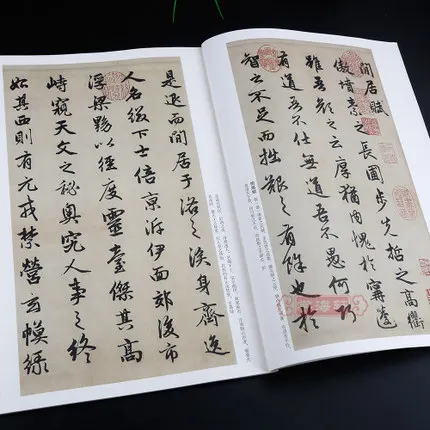 閒居賦
傲墳素之長圃步先哲之高衢
雖吾顏之云厚猶內愧於甯蘧
有道吾不仕無道吾不愚何巧
智之不足而拙艱之有餘也於
是退而閒居于洛之涘身齊逸
人名綴下士倍京泝伊面郊後市
浮梁黝以徑度靈臺傑其高
峙窺天文之秘奧究人事之終
始其西則有元戎禁營玄幙綠